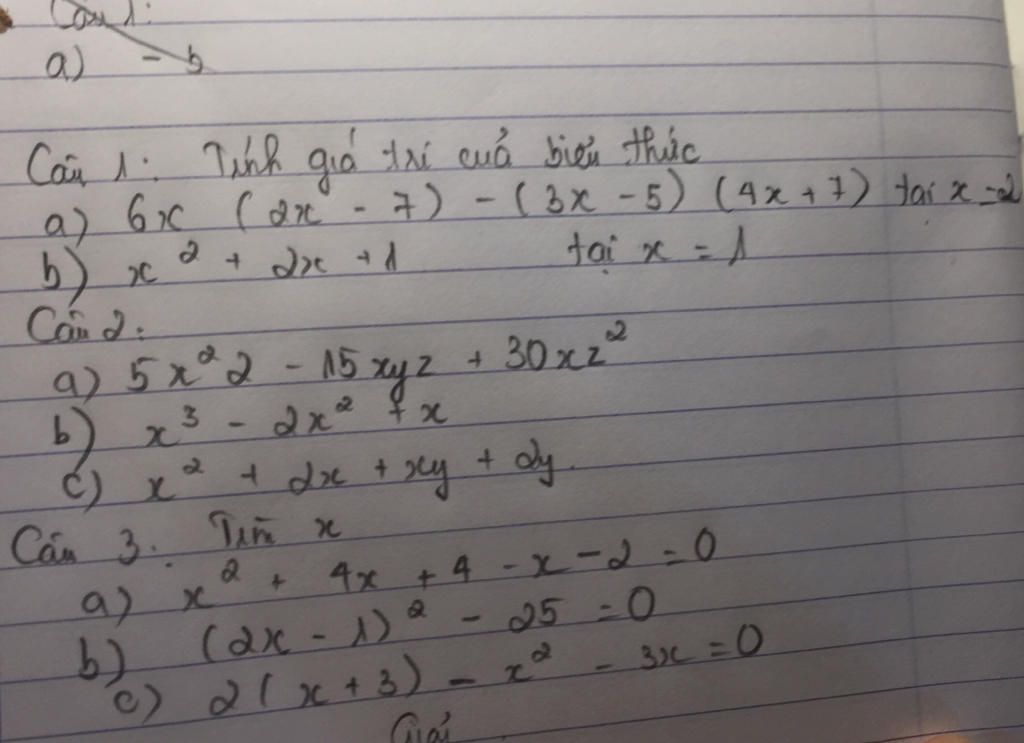 Câu 1:
a) - 5
Câu 1: Tính giá trị cuả biểu thức
a) 6x (2x - 7) - (3x - 5) (4x + 7) tại x = 2
b) x² + 2x + 1 tại x = 1
Câu 2:
a) 5x²2 - 15xyz + 30xz²
b) x³ - 2x² + x
c) x² + 2x + xy + 2y.
Câu 3: Tìm x
a) x² + 4x + 4 - x - 2 = 0
b) (2x - 1)² - 25 = 0
c) 2(x + 3) - x² - 3x = 0
Giải